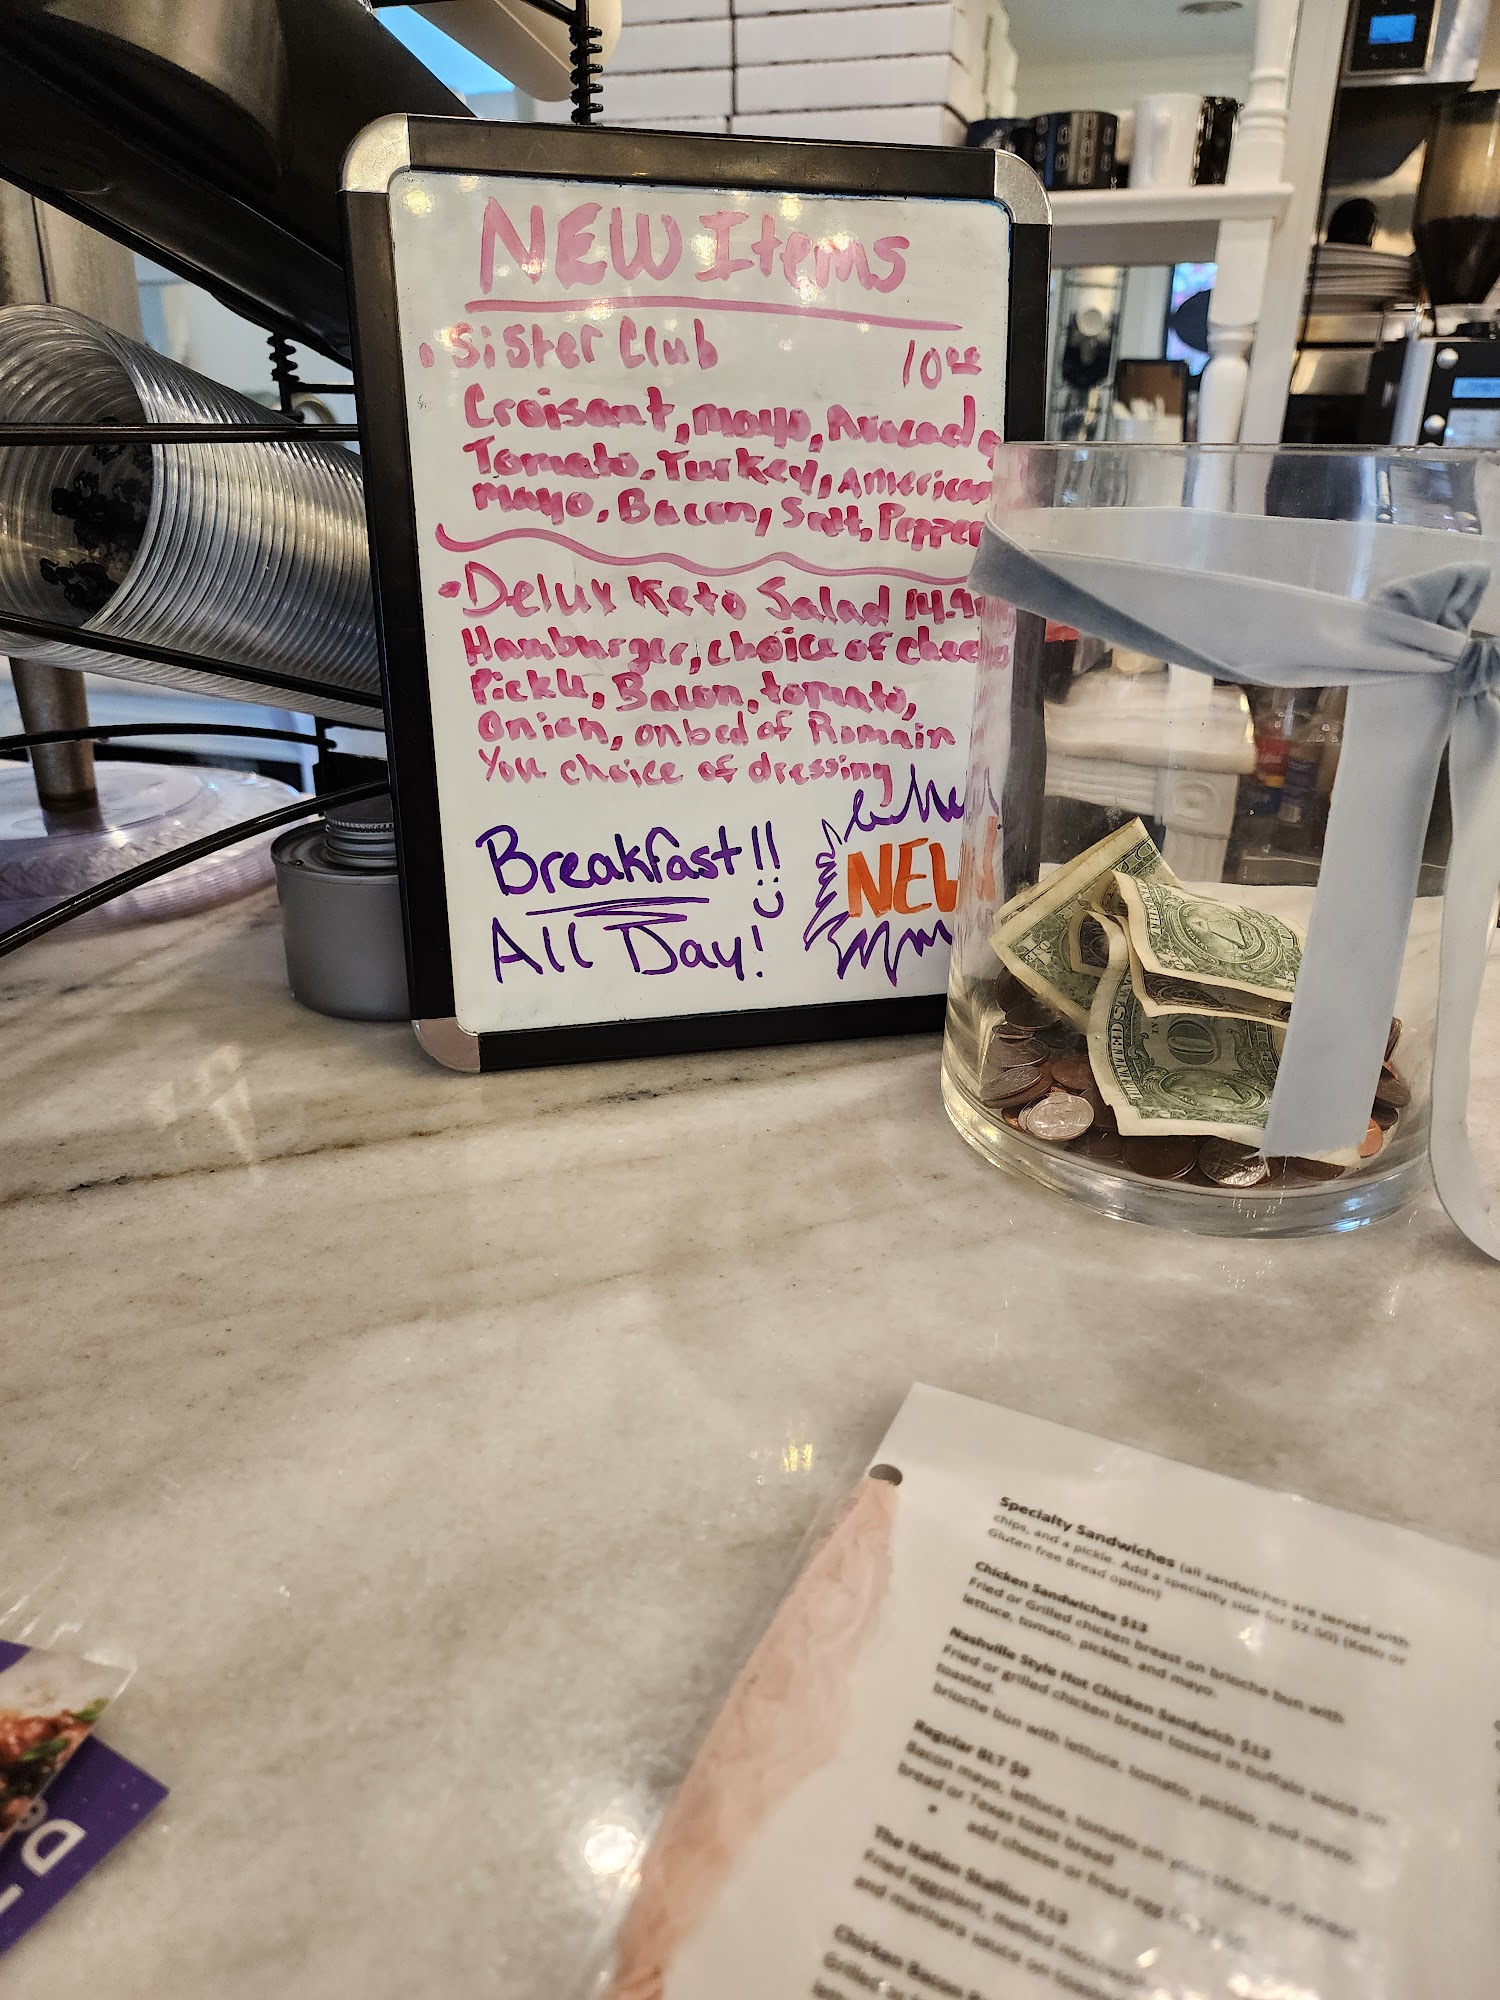 NEW Items
• Sister Club 10
Croisant, mayo, Avocado
Tomato, Turkey, American
mayo, Bacon, Salt, Pepper
• Delux Keto Salad 14.9
Hamburger, choice of chee
Pickle, Bacon, tomato,
Onion, on bed of Romain
You choice of dressing
Breakfast!!
All Day!
NEW
Specialty Sandwiches (all sandwiches are served with
chips, and a pickle. Add a specialty side for $2.50) (Keto or
Gluten free Bread option)
Chicken Sandwiches $13
Fried or Grilled chicken breast on brioche bun with
lettuce, tomato, pickles, and mayo.
Nashville Style Hot Chicken Sandwich $13
Fried or grilled chicken breast tossed in buffalo sauce on
toasted.
brioche bun with lettuce, tomato, pickles, and mayo.
Regular BLT $9
Bacon mayo, lettuce, tomato on your choice of wheat
bread or Texas toast bread
• add cheese or fried egg
The Italian Stallion $13
Fried eggplant, melted
and marinara sauce on
Chicken Bacon
Grilled